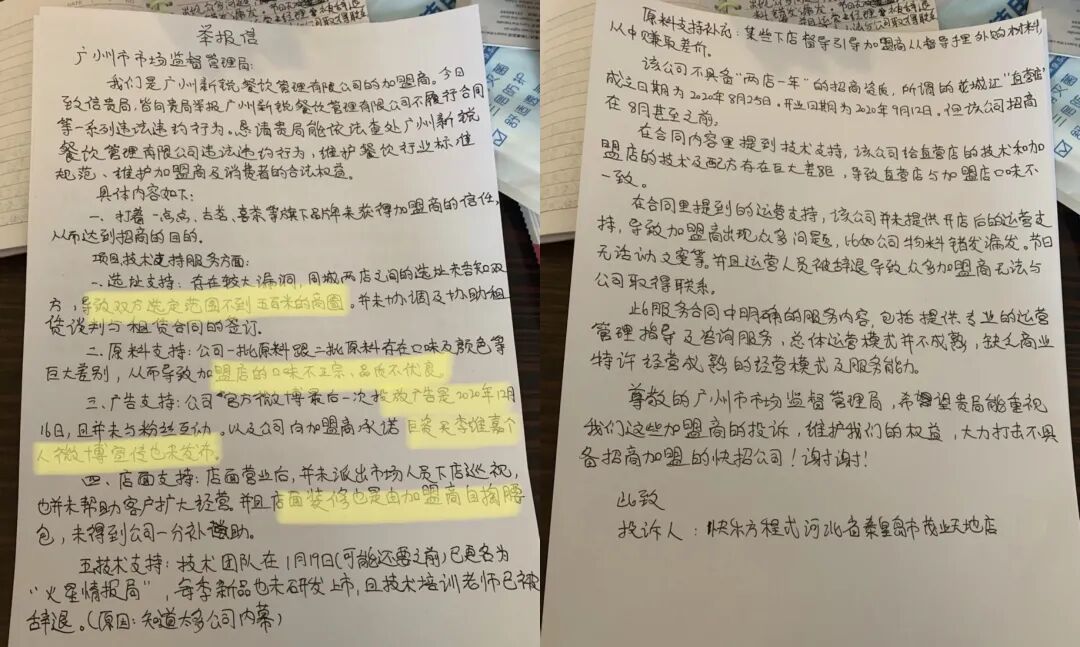 举报信
广州市市场监督管理局:
我们是广州新锐餐饮管理有限公司的加盟商。今日
致信贵局,皆向贵局举报广州新锐餐饮管理有限公司不履行合同
等一系列违法违约行为。恳请贵局能依法查处广州新锐
餐饮管理有限公司违法违约行为,维护餐饮行业标准
规范、维护加盟商及消费者的合法权益。
具体内容如下:
一、打着一点点、古茗、喜茶等旗下品牌来获得加盟商的信任,
从而达到招商的目的。
项目技术支持服务方面:
一.选址支持:存在较大漏洞,同城两店之间的选址未告知双
方,导致双方选定范围不到五百米的商圈。并未协调及协助租
赁谈判与租赁合同的签订.
二.原料支持:公司一批原料跟二批原料存在口味及颜色等
巨大差别,从而导致加盟店的口味不正宗、品质不优良。
三.广告支持:公司"官方微博最后一次投放广告是2020年12月
16日,且并未与粉丝互动。以及公司向加盟商承诺巨资买李维嘉个
人微博宣传也未发布。
四.店面支持:店面营业后,并未派出市场人员下店巡视,
也并未帮助客户扩大经营。并且店面装修也是由加盟商自掏腰
包,未得到公司一分补助。
五技术支持:技术团队在1月19日(可能还要之前)已更名为
"火星情报局",每季新品也未研发上市,且技术培训老师已被
辞退。(原因:知道太多公司内幕)
原料支持补充:某些下店督导引导加盟商从督导手里外购材料,
从中赚取差价.
该公司不具备"两店一年"的招商资质,所谓的花城汇"直营店"
成立日期为2020年8月25日.开业日期为2020年9月12日。但该公司招商
在8月甚至之前。
在合同内容里提到技术支持,该公司给直营店的技术和加
盟店的技术及配方存在巨大差距,导致直营店与加盟店口味不
一致。
在合同里提到的运营支持,该公司并未提供开店后的运营支
持,导致加盟商出现众多问题,比如公司物料错发漏发。节日
无活动文案等。并且运营人员被辞退导致众多加盟商无法与
公司取得联系。
此服务合同中明确的服务内容,包括提供专业的运营
管理指导及咨询服务,总体运营模式并不成熟,缺乏商业
特许经营成熟的经营模式及服务能力。
尊敬的广州市市场监督管理局,希望贵局能重视
我们这些加盟商的投诉,维护我们的权益,大力打击不具
备招商加盟的快招公司!谢谢!
此致
投诉人:快乐方程式河北省秦皇岛市茂业天地店